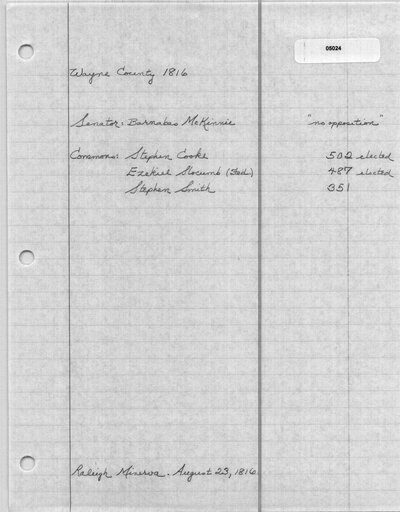 05024
Wayne County 1816
Senator: Barnabas McKinnie "no opposition"
Commons: Stephen Cooke 502 elected
Ezekiel Slocumb (Fed) 487 elected
Stephen Smith 351
Raleigh Minerva. August 23, 1816